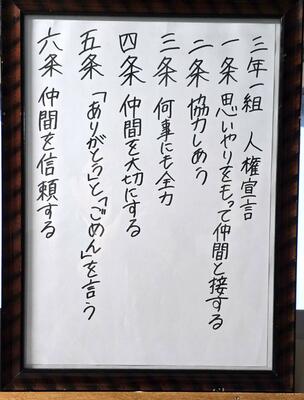 三年一組 人権宣言
一条 思いやりをもって仲間と接する
二条 協力しあう
三条 何事にも全力
四条 仲間を大切にする
五条 「ありがとう」と「ごめん」を言う
六条 仲間を信頼する